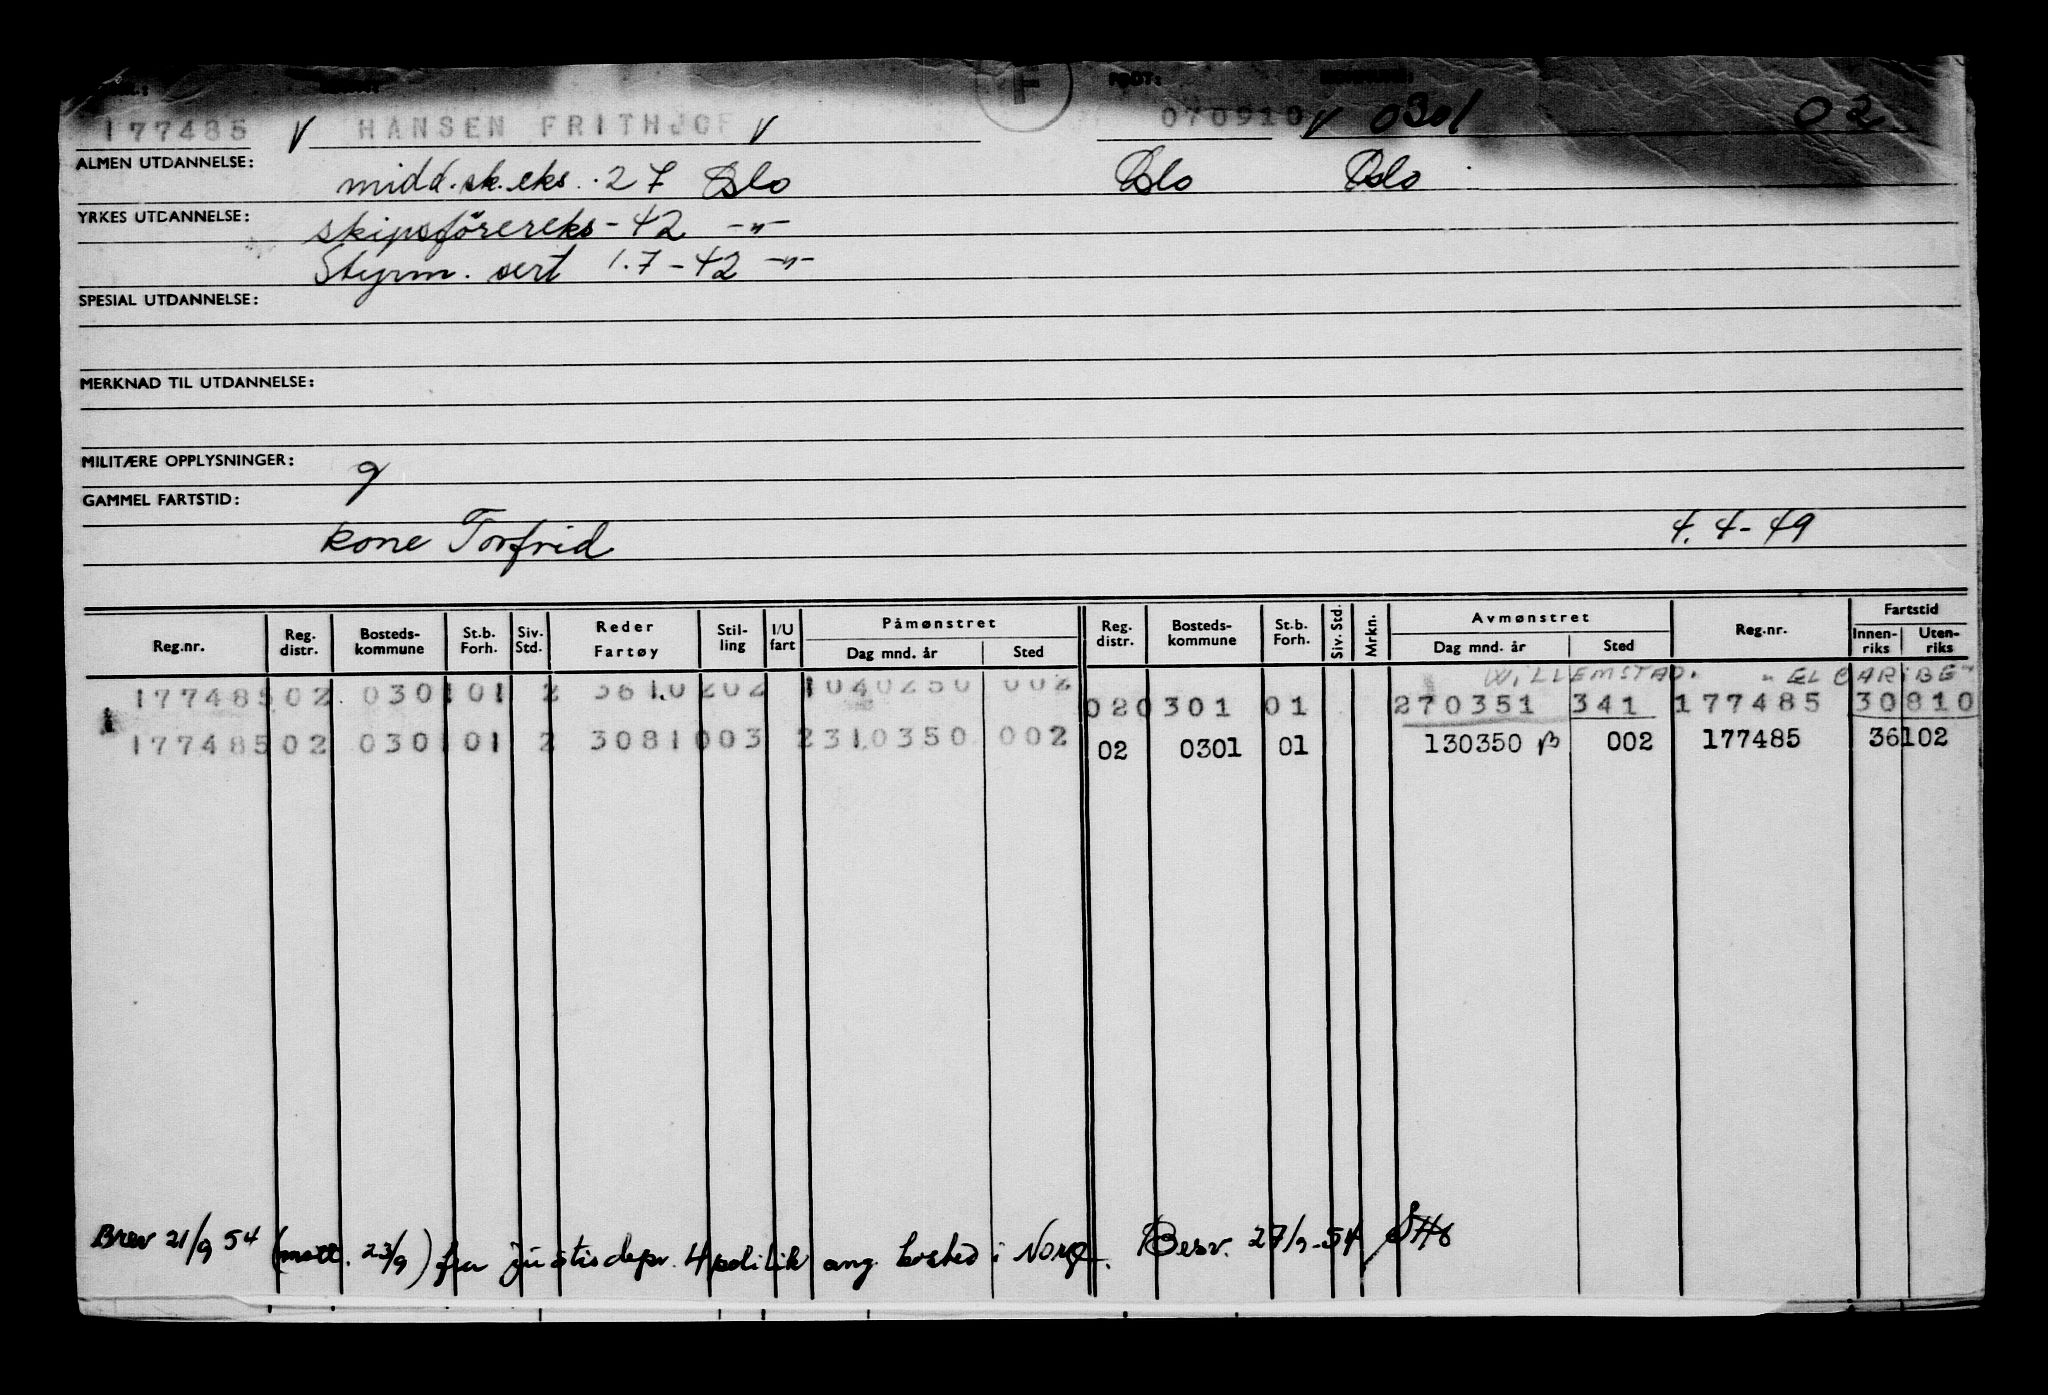 T FØDT:
177485 V HANSEN FRITHJOF V 070910 V 0301 02
ALMEN UTDANNELSE: midd.sk.eks. -27 Oslo Oslo Oslo
YRKES UTDANNELSE: skipsförereks - 42 -"-
Styrm. sert 1.7-42 -"-
SPESIAL UTDANNELSE:
MERKNAD TIL UTDANNELSE:
MILITÆRE OPPLYSNINGER: 9
GAMMEL FARTSTID:
kone Torfrid 4.4-49
Reg.nr. Reg. distr. Bosteds-kommune St.b. Forh. Siv. Std. Reder Fartøy Stil-ling I/U fart Påmønstret Dag mnd. år Sted Reg. distr. Bosteds-kommune St.b. Forh. Siv. Std. Mrkn. Avmønstret Dag mnd. år Sted Reg.nr. Fartstid Innen-riks Uten-riks
WILLEMSTAD. "EL CARIBE"
177485 02 0301 01 2 3610 202 1040250 002 02 0301 01 270351 341 177485 30810
177485 02 0301 01 2 3081 003 2310350 002 02 0301 01 130350 β 002 177485 36102
Brev 21/9 54 (mott. 23/9) fra justisdepr. 4 politik ang. bosted i Norge. Besv. 27/9-54